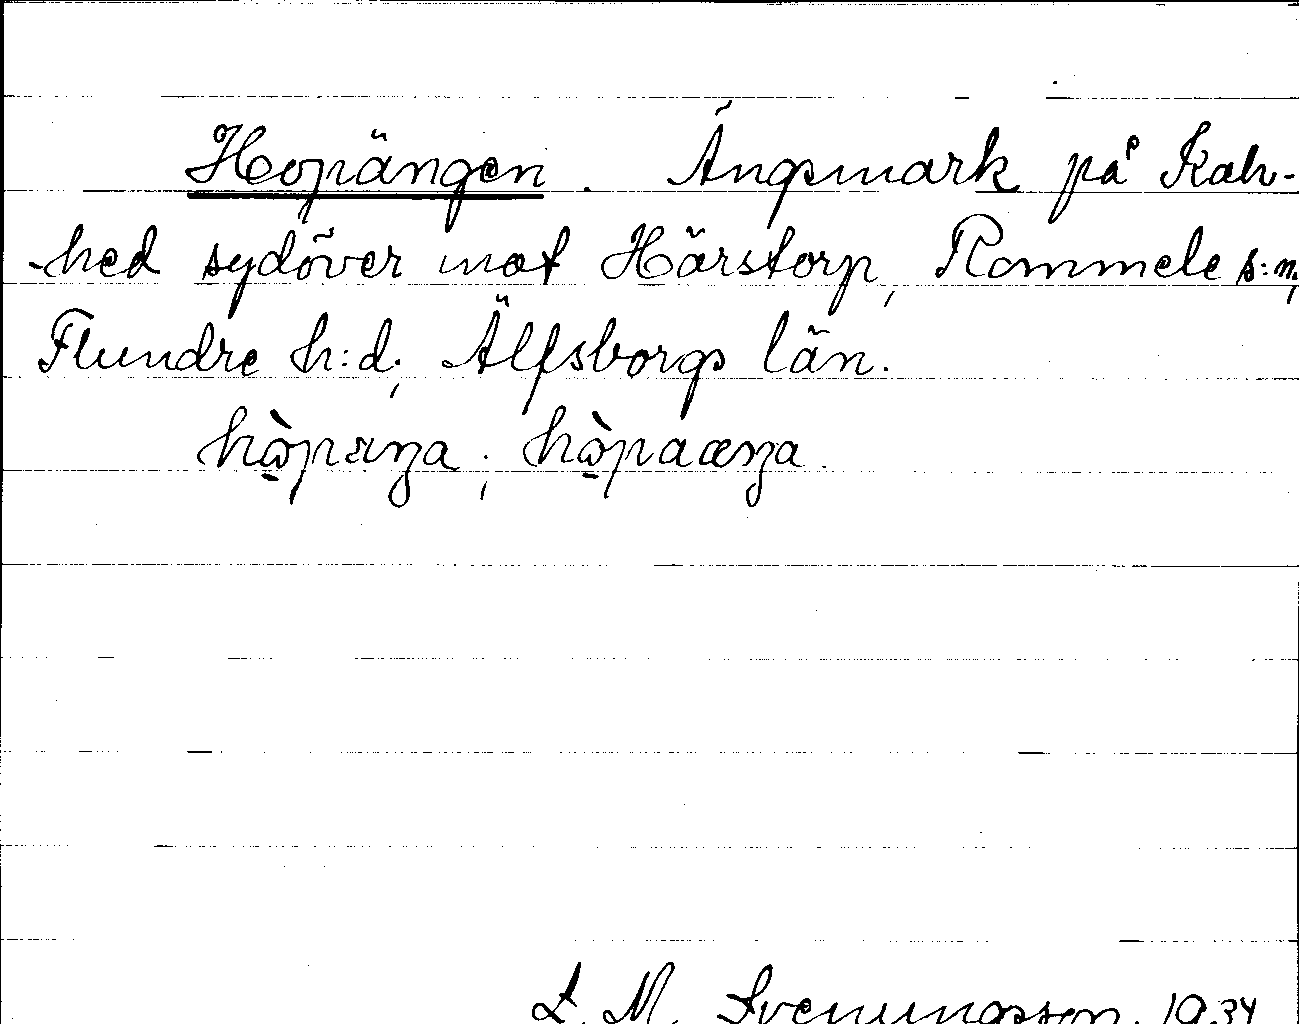 Hopängen. Ängsmark på Kah-
-hed sydöver mot Härstorp, Rommele s:n,
Flundre h:d, Älfsborgs län.
L. M. Svenungsson. 1934